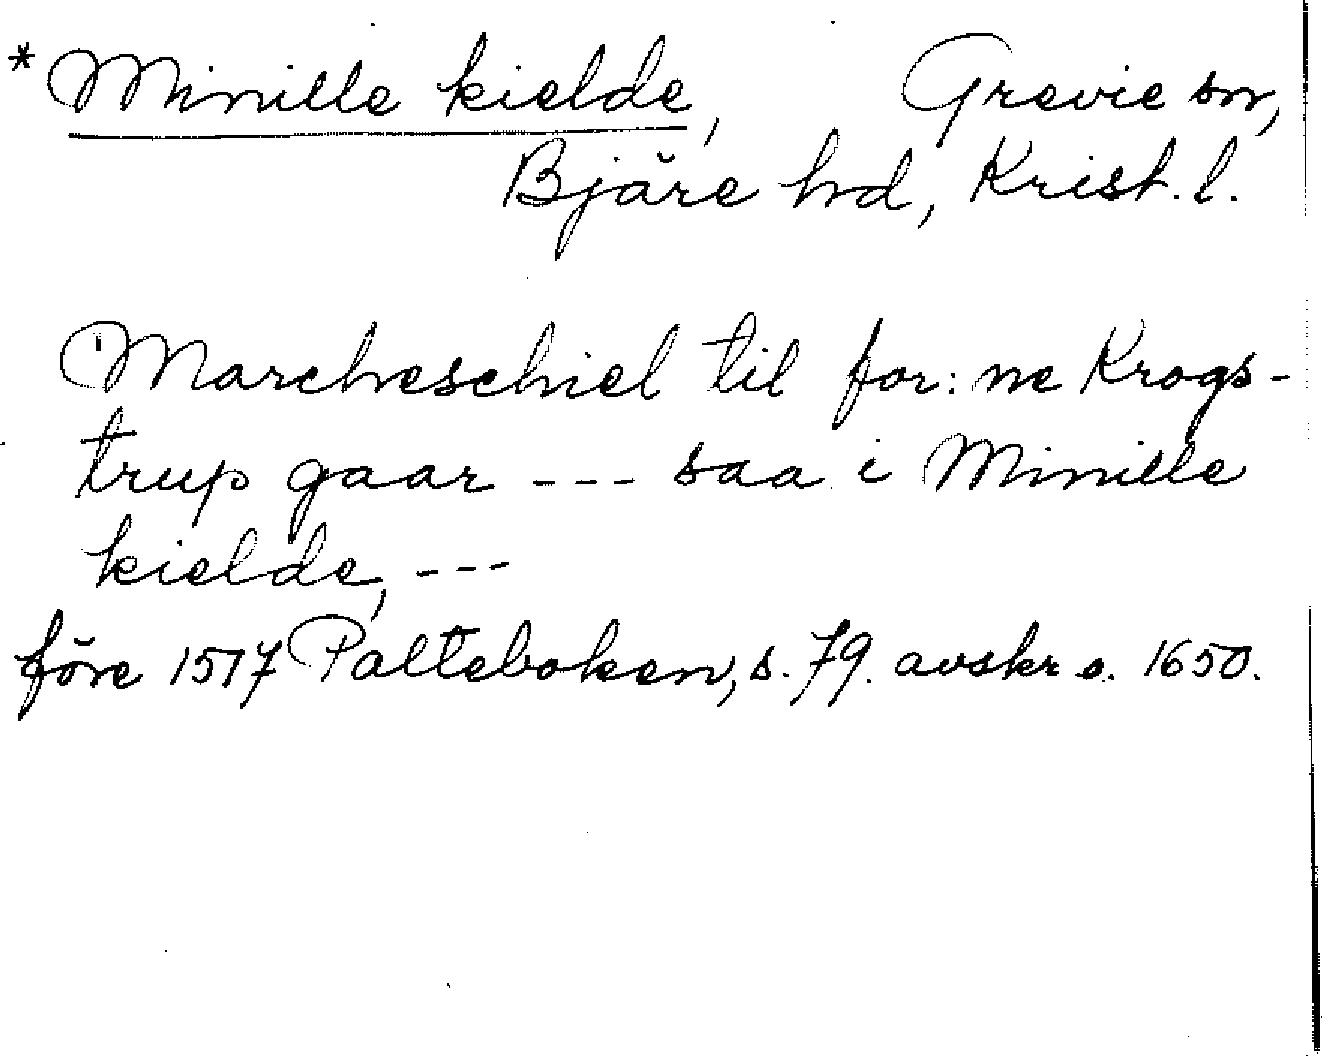 * Minille kielde, Grevie sn,
Bjäre hd, Krist. l.
Marcheschiel til for: ne Krogs-
trup gaar --- saa i Minille
kielde, ---
före 1517 Palteboken, s. 79. avskr o. 1650.